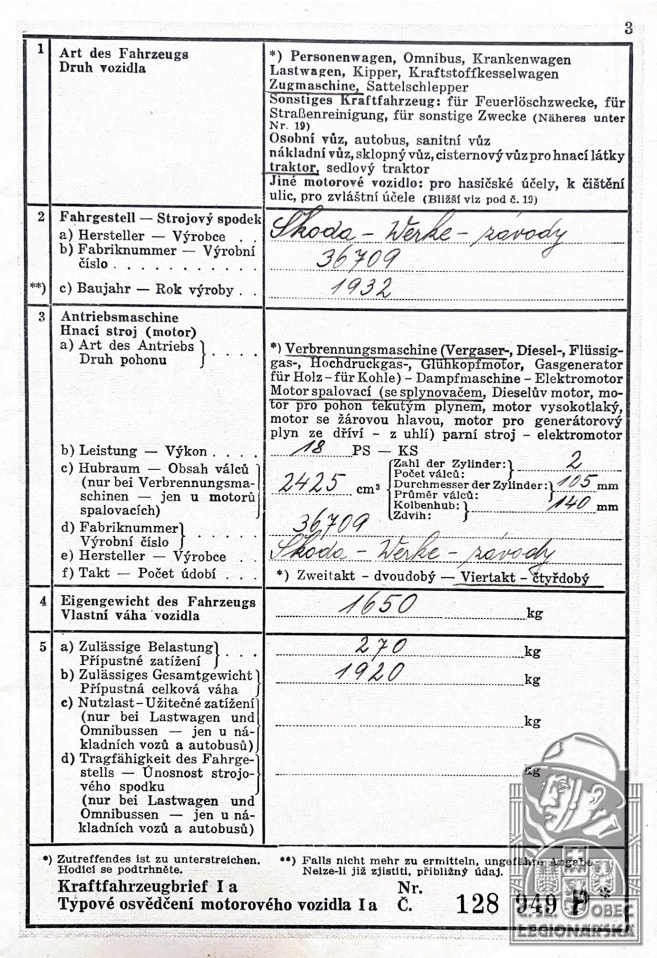 3
1 Art des Fahrzeugs
Druh vozidla
*) Personenwagen, Omnibus, Krankenwagen
Lastwagen, Kipper, Kraftstoffkesselwagen
Zugmaschine, Sattelschlepper
Sonstiges Kraftfahrzeug: für Feuerlöschzwecke, für
Straßenreinigung, für sonstige Zwecke (Näheres unter
Nr. 19)
Osobní vůz, autobus, sanitní vůz
nákladní vůz, sklopný vůz, cisternový vůz pro hnací látky
traktor, sedlový traktor
Jiné motorové vozidlo: pro hasičské účely, k čištění
ulic, pro zvláštní účele (Bližší viz pod č. 19)
2 Fahrgestell — Strojový spodek
a) Hersteller — Výrobce . . Škoda - Werke - závody
b) Fabriknummer — Výrobní
číslo . . . . . . . . . . . 36709
**) c) Baujahr — Rok výroby . . 1932
3 Antriebsmaschine
Hnací stroj (motor)
a) Art des Antriebs
Druh pohonu
*) Verbrennungsmaschine (Vergaser-, Diesel-, Flüssig-
gas-, Hochdruckgas-, Glühkopfmotor, Gasgenerator
für Holz - für Kohle) - Dampfmaschine - Elektromotor
Motor spalovací (se splynovačem, Dieselův motor, mo-
tor pro pohon tekutým plynem, motor vysokotlaký,
motor se žárovou hlavou, motor pro generátorový
plyn ze dříví - z uhlí) parní stroj - elektromotor
b) Leistung — Výkon . . . 18 PS — KS
c) Hubraum — Obsah válců
(nur bei Verbrennungsma-
schinen — jen u motorů
spalovacích)
2425 cm³
Zahl der Zylinder:
Počet válců: 2
Durchmesser der Zylinder:
Průměr válců: 105 mm
Kolbenhub:
Zdvih: 140 mm
d) Fabriknummer
Výrobní číslo 36709
e) Hersteller — Výrobce . . Škoda - Werke - závody
f) Takt — Počet údobí . . . *) Zweitakt - dvoudobý — Viertakt - čtyřdobý
4 Eigengewicht des Fahrzeugs
Vlastní váha vozidla 1650 kg
5 a) Zulässige Belastung
Přípustné zatížení 270 kg
b) Zulässiges Gesamtgewicht
Přípustná celková váha 1920 kg
c) Nutzlast - Užitečné zatížení
(nur bei Lastwagen und
Omnibussen — jen u ná-
kladních vozů a autobusů) kg
d) Tragfähigkeit des Fahrge-
stells — Únosnost strojo-
vého spodku
(nur bei Lastwagen und
Omnibussen — jen u ná-
kladních vozů a autobusů) kg
*) Zutreffendes ist zu unterstreichen.
Hodící se podtrhněte.
**) Falls nicht mehr zu ermitteln, ungefähre Angabe.
Nelze-li již zjistiti, přibližný údaj.
Kraftfahrzeugbrief I a
Typové osvědčení motorového vozidla I a
Nr.
Č. 128 949 P *
OBEC
LEGIONÁŘSKÁ